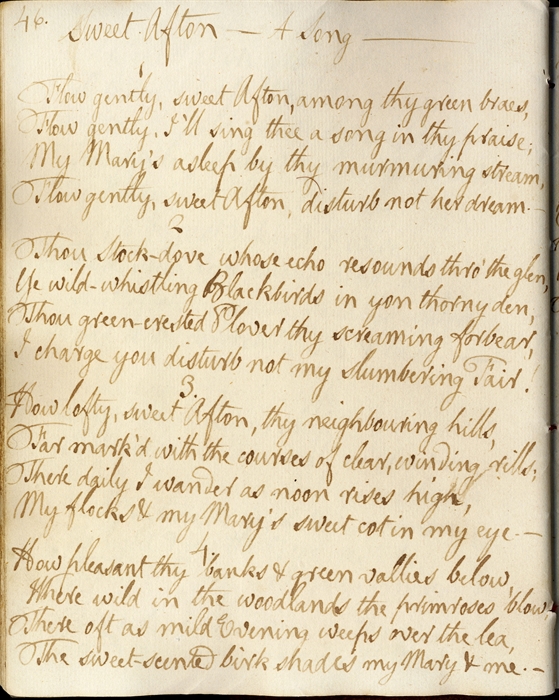 46.
Sweet Afton — A Song —
1
Flow gently, sweet Afton, among thy green braes,
Flow gently, I'll sing thee a song in thy praise;
My Mary's asleep by thy murmuring stream,
Flow gently, sweet Afton, disturb not her dream.—
2
Thou stock-dove whose echo resounds thro' the glen,
Ye wild-whistling Blackbirds in yon thorny den,
Thou green-crested Plover thy screaming forbear,
I charge you disturb not my slumbering Fair!
3.
How lofty, sweet Afton, thy neighbouring hills,
Far mark'd with the courses of clear, winding rills;
There daily I wander as noon rises high,
My flocks & my Mary's sweet cot in my eye.—
4
How pleasant thy banks & green vallies below,
Where wild in the woodlands the primroses blow,
There oft as mild Evening weeps over the lea,
The sweet-scented birk shades my Mary & me.—